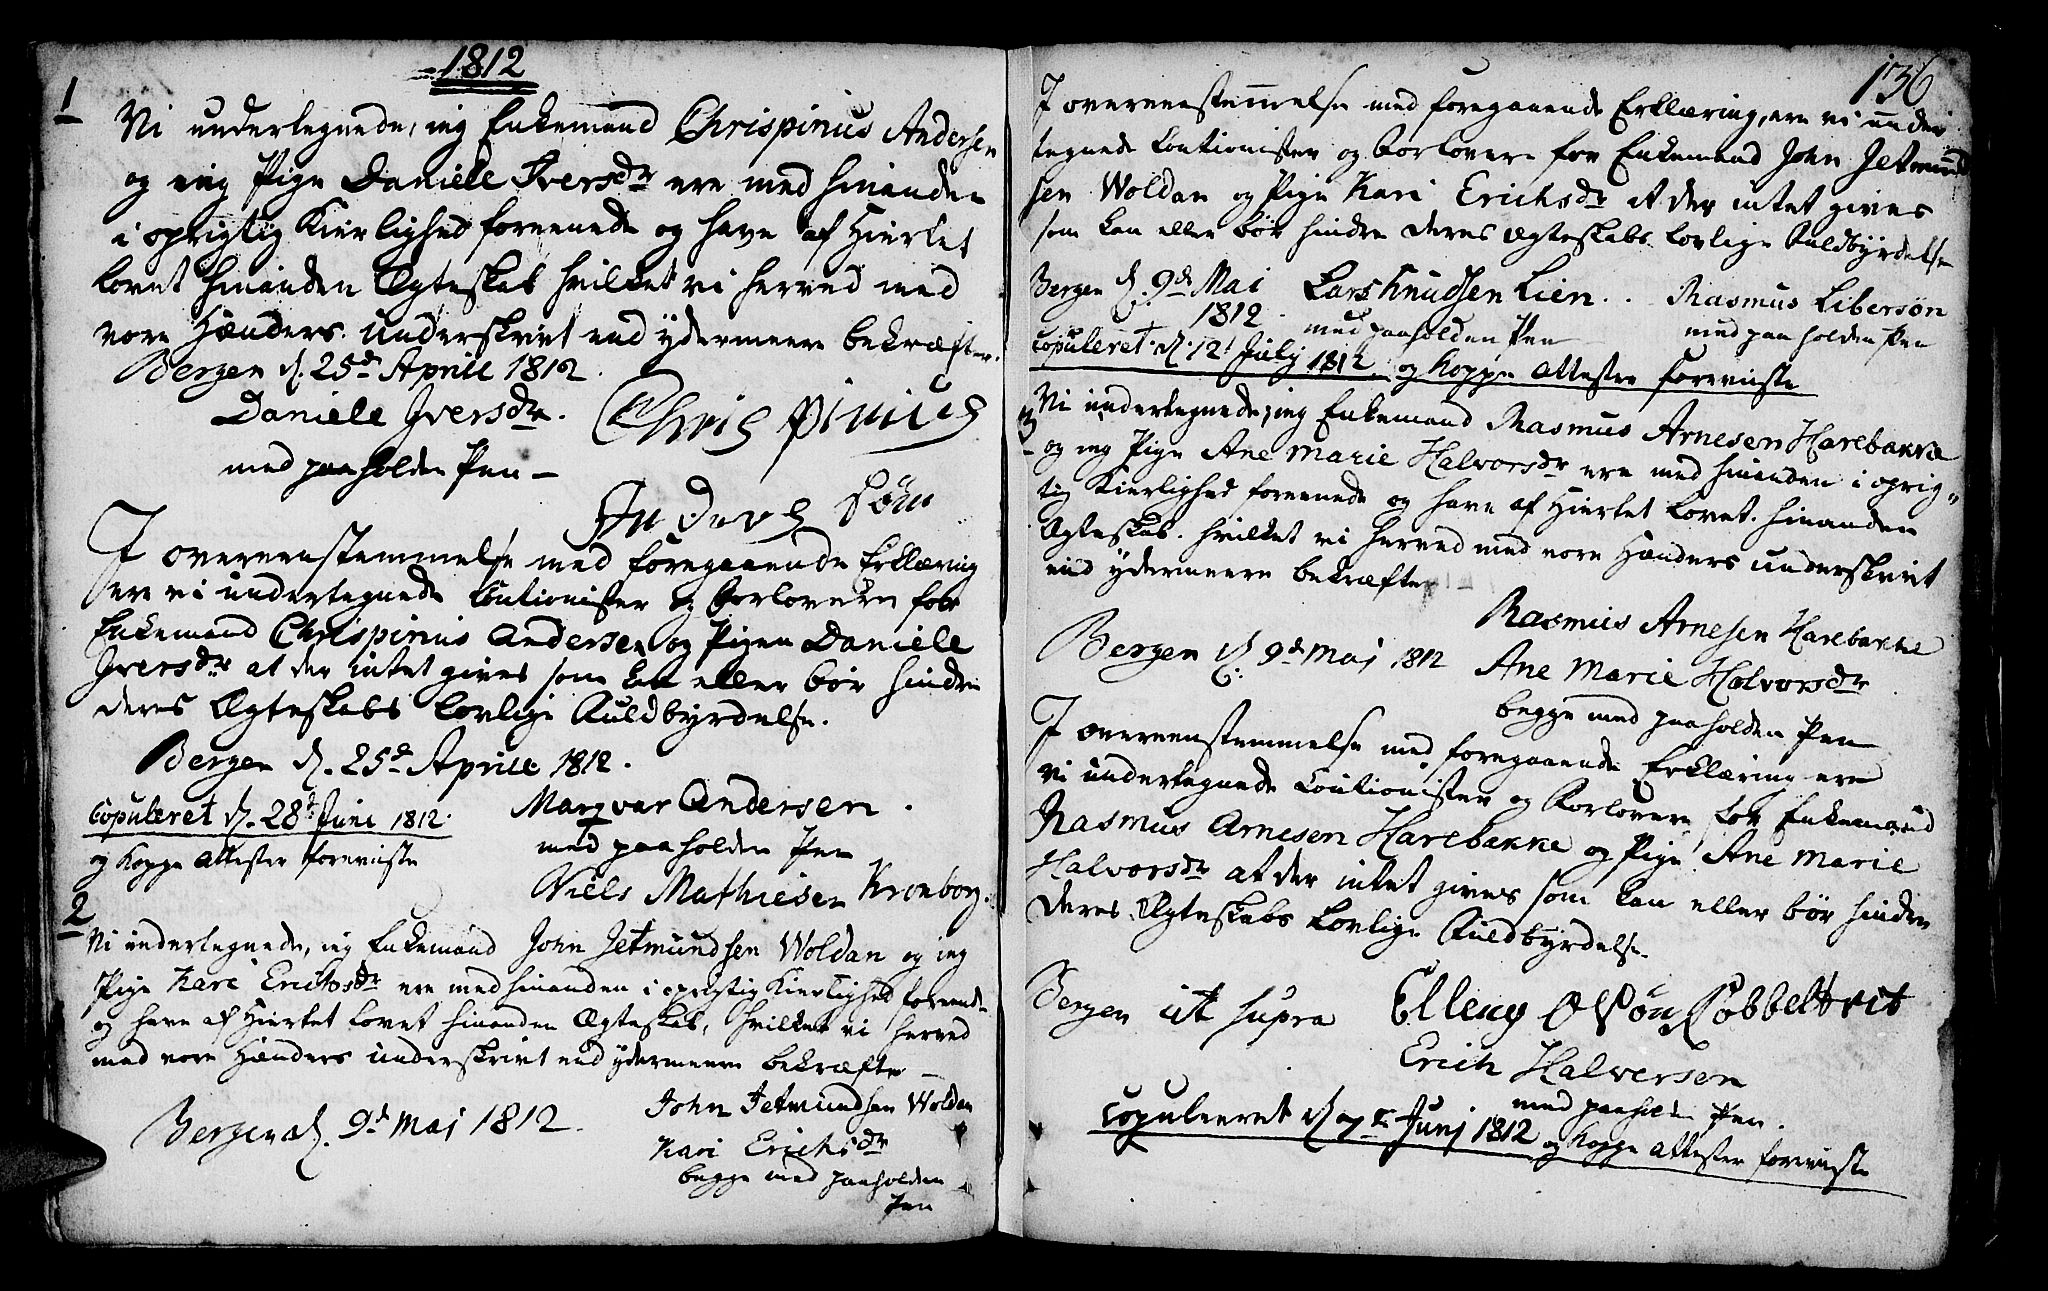 1812
1
Vi underlegnede, ieg Enkemand Chrispinus Andersen
og ieg Pige Daniele Iversdr ere med hinanden
i oprigtig Kierlighed foreenede og have af Hiertet
lovet hinanden Ægteskab hvilket vi herved med
vore Hænders underskrivt end ydermeere bekræfter.
Bergen d. 25de Aprili 1812.
Daniele Iversdr.
med paaholden Pen –
Chrispinius
Anders Søn
I overeenstemmelse med foregaaende Erklæring
ere vi underlegnede Coutionister og Forlovere for
Enkemand Chrispinius Andersen og Pigen Daniele
Iversdr at der intet gives som kan eller bør hindre
deres Ægteskabs lovlige Fuldbyrdelse.
Bergen d. 25de Aprili 1812.
Copuleret d. 28d Juni 1812.
og Koppe attester foreviiste
Marqvar Andersen.
med paaholden Pen
Niels Mathiesen Kronborg.
2
Vi underlegnede, ieg Enkemand John Jetmundsen Woldan og ieg
Pige Kari Erichsdr ere med hinanden i oprigtig Kierlighed foreende
og have af Hiertet lovet hinanden Ægteskab, hvilket vi herved
med vore Hænders underskrivt end ydermeere bekræfte –
Bergen d. 9d Maj 1812.
John Jetmundsen Woldan
Kari Erichsdr
begge med paaholden
Pen
136
I overeenstemmelse med foregaaende Erklæring, ere vi under
tegnede Coutionister og Forlovere for Enkemand John Jetmund
sen Woldan og Pige Kari Erichsdr at der intet gives
som kan eller bør hindre deres Ægteskabs lovlige Fuldbyrdelse
Bergen d. 9de Mai
1812.
Lars Knudsen Lien..
med paaholden Pen
Rasmus Libersøn
med paaholden Pen
Copuleret d. 12t July 1812 og Koppe attester foreviiste
3
Vi underlegnede, ieg Enkemand Rasmus Arnesen Harebakke
og ieg Pige Ane Marie Halvorsdr ere med hinanden i oprig-
tig Kierlighed foreenede og have af Hiertet lovet hinanden
Ægteskab. hvilket vi herved med vore Hænders underskrivt
end ydermeere bekræfte
Rasmus Arnesen Harebakke
Bergen d. 9d Maj 1812
Ane Marie Halvorsdr
begge med paaholden Pen
I overeenstemmelse med foregaaende Erklæring ere
vi underlegnede Coutionister og Forlovere for Enkemand
Rasmus Arnesen Harebakke og Pige Ane Marie
Halvorsdr at der intet gives som kan eller bør hindre
deres Ægteskabs lovlige Fuldbyrdelse.
Bergen ut supra
Elleng Olsøn Sobbeltvit
Erich Halversen
med paaholden Pen.
Copuleeret d 7de Junj 1812 og Koppe attester foreviiste